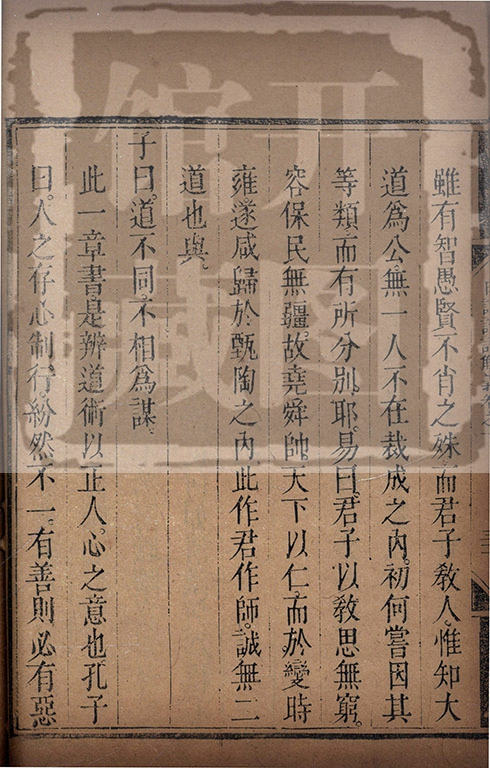 雖有智愚賢不肖之殊而君子教人惟知大
道爲公無一人不在裁成之內初何嘗因其
等類而有所分别耶易曰君子以教思無窮
容保民無疆故堯舜帥天下以仁而於變時
雍遂咸歸於甄陶之內此作君作師誠無二
道也與
子曰道不同不相爲謀
此一章書是辨道術以正人心之意也孔子
曰人之存心制行紛然不一有善則必有惡
开馆
图藏